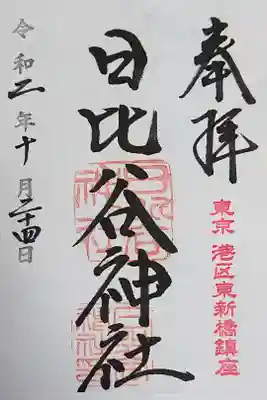 奉拝
東京 港区東新橋鎮座
日比谷神社
令和二年十月二十四日